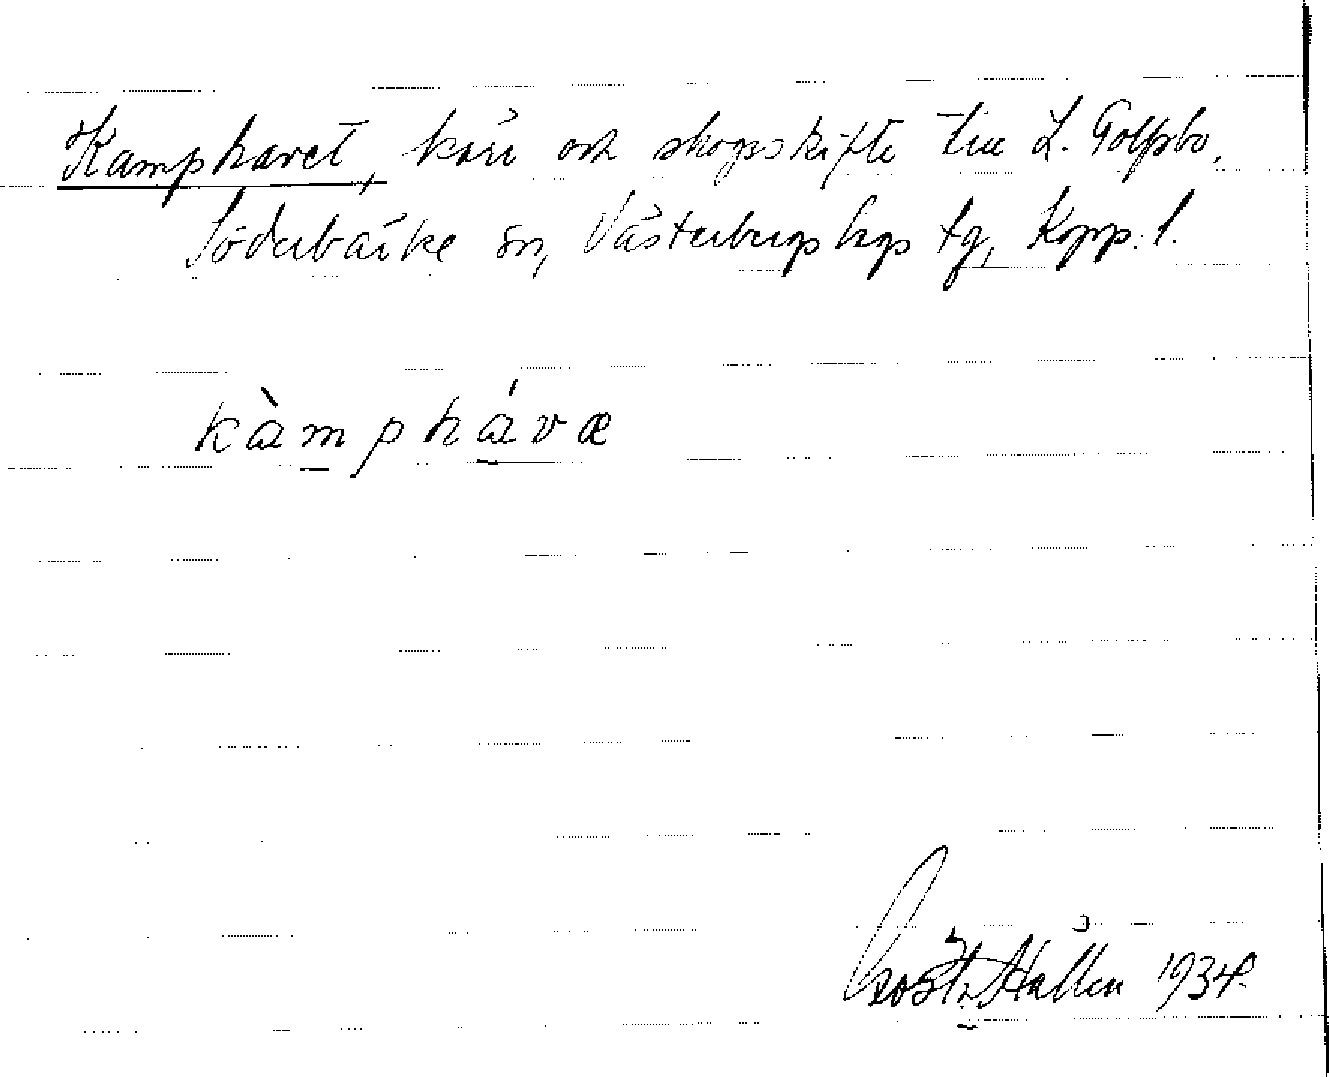 Kamphavet, kärr och skogsskifte till L. Golfsbo,
Söderbärke sn, Västerbergslags tg, Kopp. l.
kàmpháva
Gösta Hallén 1934.